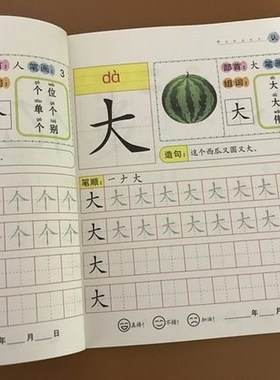 首：人 笔画：3
个位
单个
个别
dà
大
造句：这个西瓜又圆又大。
部首：大 笔画
组词：
大
笔顺：一ナ大
个 个 个
大 大 大 大 大 大 大 大
个 个 个
大 大 大 大 大 大 大 大
大
大
年 月 日
真棒！ 不错！ 加油！
年 月